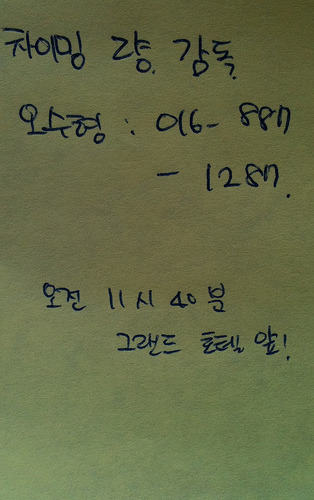 차이밍 량. 감독.
오수형 : 016-887
- 1287.
오전 11시 40분
그랜드 호텔 앞!